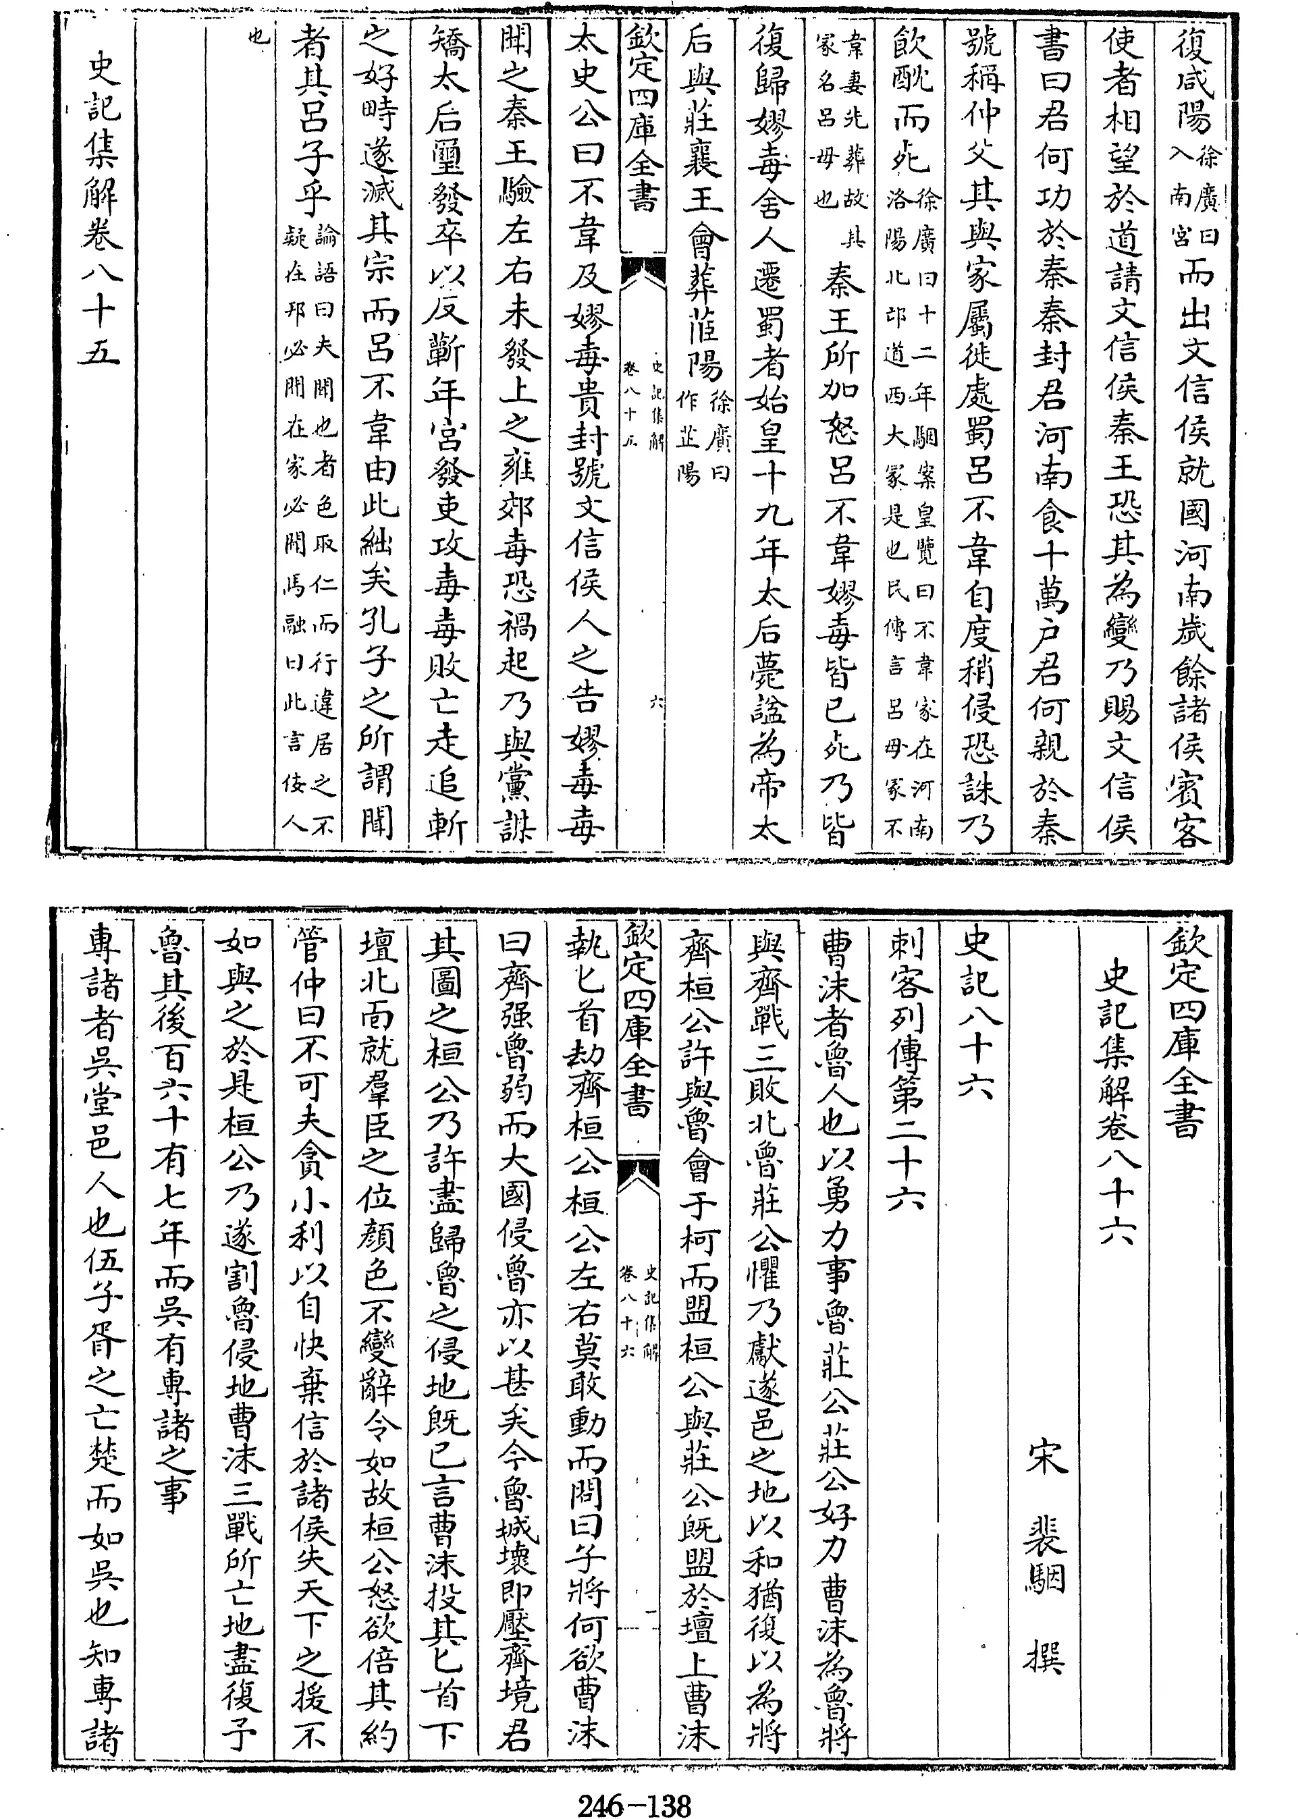 復咸陽徐廣曰入南宮而出文信侯就國河南歲餘諸侯賓客
使者相望於道請文信侯秦王恐其為變乃賜文信侯
書曰君何功於秦秦封君河南食十萬户君何親於秦
號稱仲父其與家屬徙處蜀吕不韋自度稍侵恐誅乃
飲酖而死徐廣曰十二年駰案皇覽曰不韋冢在河南洛陽北邙道西大冢是也民傳言吕母冢不
韋妻先葬故其冢名吕母也秦王所加怒吕不韋嫪毐皆已死乃皆
復歸嫪毐舍人遷蜀者始皇十九年太后薨諡為帝太
后與莊襄王會葬茝陽徐廣曰作芷陽
欽定四庫全書 史記集解卷八十五 六
太史公曰不韋及嫪毐貴封號文信侯人之告嫪毐毐
聞之秦王驗左右未發上之雍郊毐恐禍起乃與黨謀
矯太后璽發卒以反蘄年宮發吏攻毐毐敗亡走追斬
之好畤遂滅其宗而吕不韋由此絀矣孔子之所謂聞
者其吕子乎論語曰夫聞也者色取仁而行違居之不疑在邦必聞在家必聞馬融曰此言佞人
也
史記集解卷八十五
欽定四庫全書
史記集解卷八十六
宋 裴駰 撰
史記八十六
刺客列傳第二十六
曹沫者魯人也以勇力事魯莊公莊公好力曹沫為魯將
與齊戰三敗北魯莊公懼乃獻遂邑之地以和猶復以為將
齊桓公許與魯會于柯而盟桓公與莊公既盟於壇上曹沫
欽定四庫全書 史記集解卷八十六 一
執匕首劫齊桓公桓公左右莫敢動而問曰子將何欲曹沫
曰齊强魯弱而大國侵魯亦以甚矣今魯城壞即壓齊境君
其圖之桓公乃許盡歸魯之侵地既已言曹沫投其匕首下
壇北面就羣臣之位顏色不變辭令如故桓公怒欲倍其約
管仲曰不可夫貪小利以自快棄信於諸侯失天下之援不
如與之於是桓公乃遂割魯侵地曹沫三戰所亡地盡復予
魯其後百六十有七年而吳有專諸之事
專諸者吳堂邑人也伍子胥之亡楚而如吳也知專諸
246-138